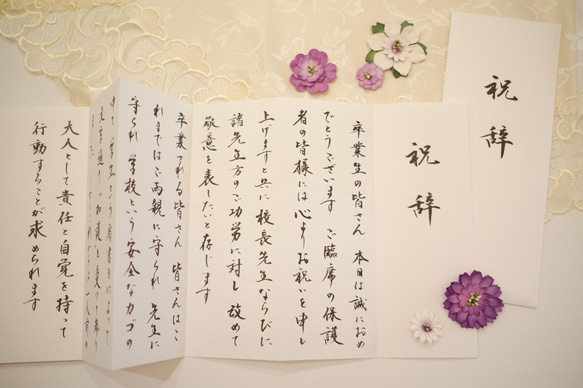 祝辞
祝辞
卒業生の皆さん 本日は誠におめ
でとうございます ご臨席の保護
者の皆様には心よりお祝いを申し
上げますと共に校長先生ならびに
諸先生方のご功労に対し 改めて
敬意を表したいと存じます
卒業される皆さん 皆さんはこ
れまではご両親に守られ 先生に
守られ 学校という安全なカゴの
大人として責任と自覚を持って
行動することが求められます